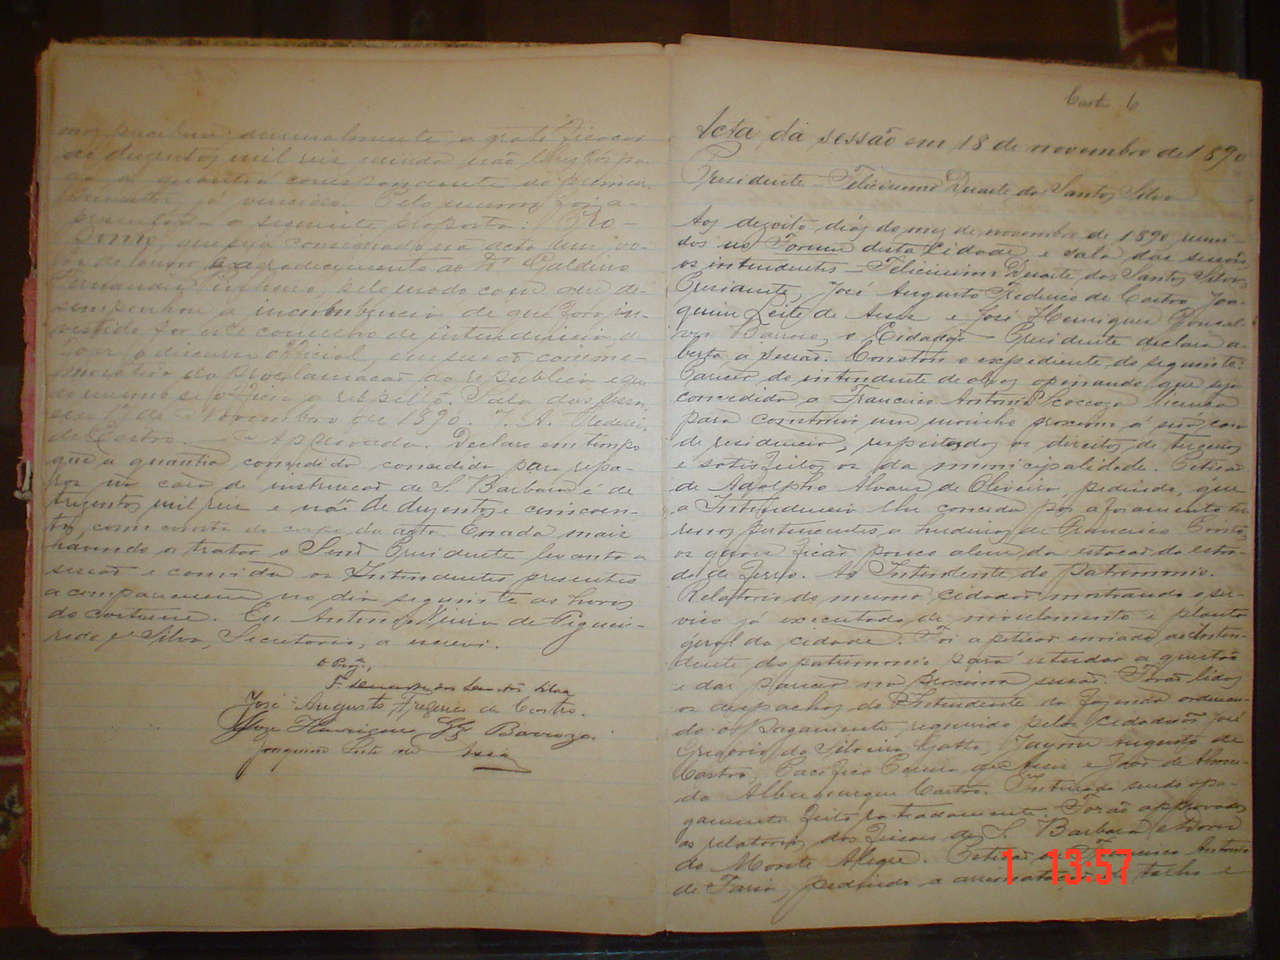 mos perceber annualmente, a gratificacão
de duzentos mil reis ainda não lhe foi pa-
ga a quantia correspondente ao primei-
semestre já vencido. Pelo mesmo foi a
presentada a seguinte proposta: Pro-
ponho que seja consignado na acta um vo-
to de louvor e agradecimento ao Dr. Galdino
Fernandes pelo modo com que de-
sempenhou a incumbencia de que fora in-
vestido por este conselho de intendencia, de
o discurso official, em sessão comme-
morativa da proclamacão da republica
a respeito. Sala das ses-
sões 17 de Novembro de 1890. J. A. Frederi-
de Castro. — Approvada. Declaro em tempo
que a quantia concedida concedida para repa-
ros na casa de instruccão de S. Barbara é de
trezentos mil reis e não de duzentos e cincoen-
ta, como consta do corpo da acta. E nada mais
havendo a tratar o Senr Presidente levanta a
sessão e convida os Intendentes presentes
a comparecerem no dia seguinte as horas
do costume. Eu Antonio de Figuei-
redo e Silva, Secretario, a escrevi.
O Prez.
F. Duarte dos Santos Silva
José Augusto Frederico de Castro.
Joze Henriques Glz Barrozo.
Joaquim Leite de Assis
Castro 6
Acta da sessão em 18 de novembro de 1890
Presidente – Felicissimo Duarte dos Santos Silva
Aos dezoito dias do mez de novembro de 1890 reuni-
dos no Forum desta Cidade e sala das sessões
os intendentes – Felicissimo Duarte dos Santos Silva,
Presidente, José Augusto Frederico de Castro, Joa-
quim Leite de Assis e José Henriques Gonçal-
ves Barrozo, o Cidadão – Presidente declara a-
berta a sessão. Constou o expediente do seguinte:
Parecer do intendente de obras opinando que seja
concedida a Francisco Antonio licença
para construir um moinho proximo á sua casa
de residencia, respeitados os direitos de terceiros
e satisfeitos os da municipalidade. Peticão
de Adolpho Alvares de Oliveira, pedindo, que
a Intendencia lhe conceda por aforamento ter-
renos pertencentes a herdeiros de Francisco
os quaes ficão pouco alem da estacão da estra-
da de ferro. Ao Intendente do patrimonio.
Relatorio do mesmo cidadão mostrando o ser-
viço já executado de nivelamento e planta
geral da cidade. Foi a peticão enviada ao Inten-
dente do patrimonio para estudar a questão
e dar parecer na proxima sessão. Forão lidos
os despachos do Intendente da fazenda ordenan-
do o pagamento requerido pelos cidadãos José
Gregorio da Silveira Gatto, Jayme Augusto de
Castro, Pacifico Pereira de Assis e João de Almei-
da Albuquerque Castro. Inteirada sendo o pa-
gamento feito Forão approvados
os relatorios dos fiscaes de S. Barbara e Dores
do Monte Alegre. Peticão de Francisco Antonio
de Faria, pedindo a talho e
1 13:57